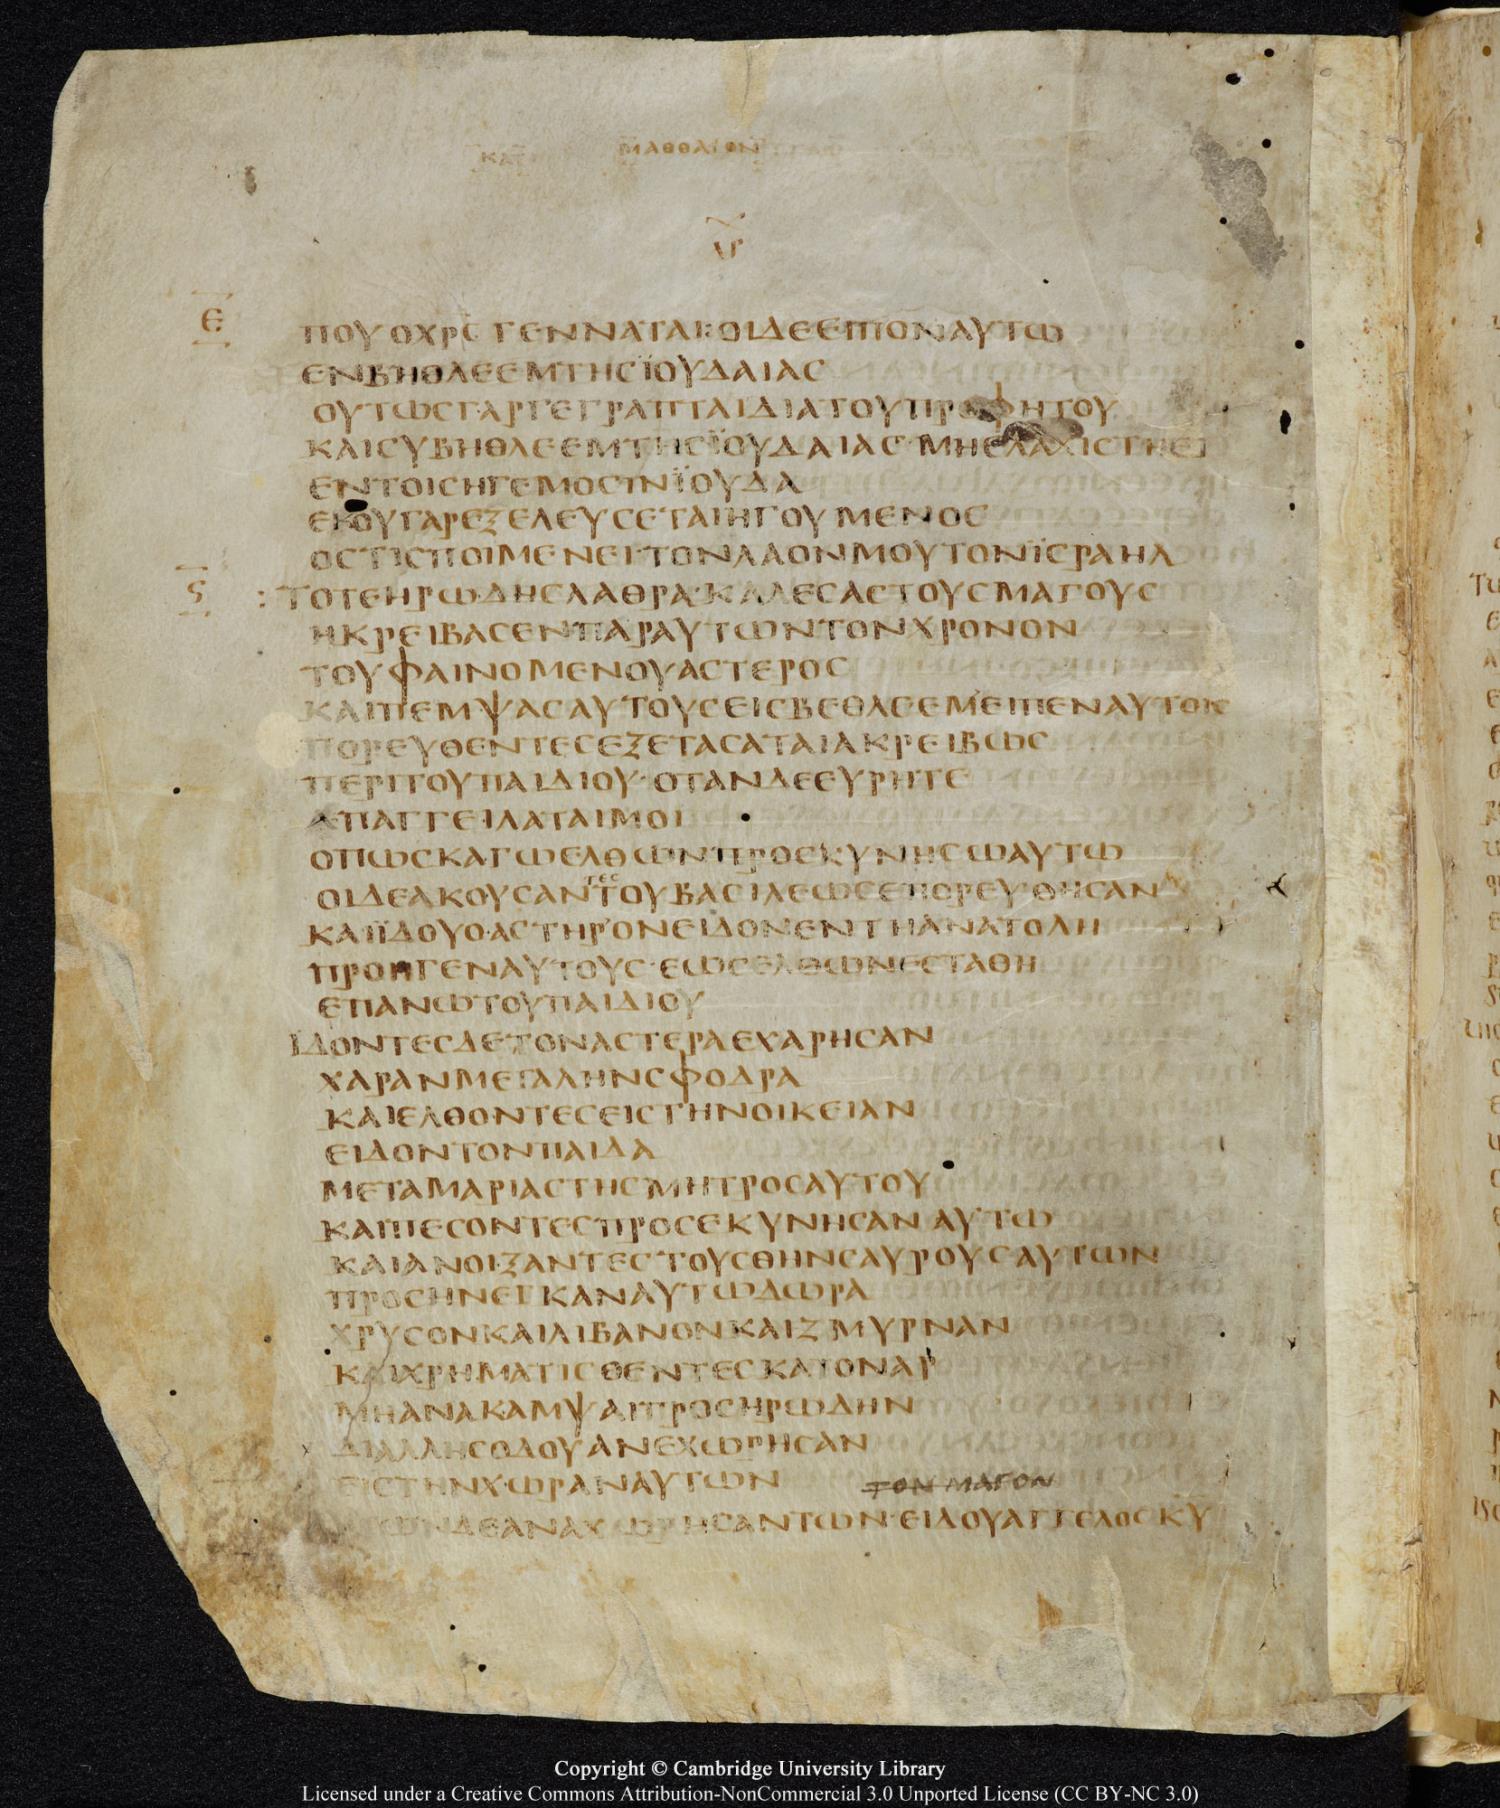 ΚΑΤ ΜΑΘΘΑΙΟΝ
Ε
ΠΟΥ Ο ΧΡΣ ΓΕΝΝΑΤΑΙ· ΟΙ ΔΕ ΕΙΠΟΝ ΑΥΤΩ
ΕΝ ΒΗΘΛΕΕΜ ΤΗΣ ΪΟΥΔΑΙΑΣ
ΟΥΤΩΣ ΓΑΡ ΓΕΓΡΑΠΤΑΙ ΔΙΑ ΤΟΥ ΠΡΟΦΗΤΟΥ
ΚΑΙ ΣΥ ΒΗΘΛΕΕΜ ΤΗΣ ΪΟΥΔΑΙΑΣ· ΜΗ ΕΛΑΧΙΣΤΗ ΕΙ
ΕΝ ΤΟΙΣ ΗΓΕΜΟΣΙΝ ΪΟΥΔΑ
ΕΚ ΟΥ ΓΑΡ ΕΞΕΛΕΥΣΕΤΑΙ ΗΓΟΥΜΕΝΟΣ
ΟΣΤΙΣ ΠΟΙΜΕΝΕΙ ΤΟΝ ΛΑΟΝ ΜΟΥ ΤΟΝ ΪΣΡΑΗΛ
Ϛ
: ΤΟΤΕ ΗΡΩΔΗΣ ΛΑΘΡΑ· ΚΑΛΕΣΑΣ ΤΟΥΣ ΜΑΓΟΥΣ
ΗΚΡΕΙΒΑΣΕΝ ΠΑΡ ΑΥΤΩΝ ΤΟΝ ΧΡΟΝΟΝ
ΤΟΥ ΦΑΙΝΟΜΕΝΟΥ ΑΣΤΕΡΟΣ
ΚΑΙ ΠΕΜΨΑΣ ΑΥΤΟΥΣ ΕΙΣ ΒΕΘΛΕΕΜ ΕΙΠΕΝ ΑΥΤΟΙΣ
ΠΟΡΕΥΘΕΝΤΕΣ ΕΞΕΤΑΣΑΤΑΙ ΑΚΡΕΙΒΩΣ
ΠΕΡΙ ΤΟΥ ΠΑΙΔΙΟΥ· ΟΤΑΝ ΔΕ ΕΥΡΗΤΕ
ΑΠΑΓΓΕΙΛΑΤΑΙ ΜΟΙ
ΟΠΩΣ ΚΑΓΩ ΕΛΘΩΝ ΠΡΟΣΚΥΝΗΣΩ ΑΥΤΩ
ΟΙ ΔΕ ΑΚΟΥΣΑΝΤΕΣ ΤΟΥ ΒΑΣΙΛΕΩΣ ΕΠΟΡΕΥΘΗΣΑΝ
ΚΑΙ ΪΔΟΥ Ο ΑΣΤΗΡ ΟΝ ΕΙΔΟΝ ΕΝ ΤΗ ΑΝΑΤΟΛΗ
ΠΡΟΗΓΕΝ ΑΥΤΟΥΣ· ΕΩΣ ΕΛΘΩΝ ΕΣΤΑΘΗ
ΕΠΑΝΩ ΤΟΥ ΠΑΙΔΙΟΥ
ΪΔΟΝΤΕΣ ΔΕ ΤΟΝ ΑΣΤΕΡΑ ΕΧΑΡΗΣΑΝ
ΧΑΡΑΝ ΜΕΓΑΛΗΝ ΣΦΟΔΡΑ
ΚΑΙ ΕΛΘΟΝΤΕΣ ΕΙΣ ΤΗΝ ΟΙΚΕΙΑΝ
ΕΙΔΟΝ ΤΟΝ ΠΑΙΔΑ
ΜΕΤΑ ΜΑΡΙΑΣ ΤΗΣ ΜΗΤΡΟΣ ΑΥΤΟΥ
ΚΑΙ ΠΕΣΟΝΤΕΣ ΠΡΟΣΕΚΥΝΗΣΑΝ ΑΥΤΩ
ΚΑΙ ΑΝΟΙΞΑΝΤΕΣ ΤΟΥΣ ΘΗΝΣΑΥΡΟΥΣ ΑΥΤΩΝ
ΠΡΟΣΗΝΕΓΚΑΝ ΑΥΤΩ ΔΩΡΑ
ΧΡΥΣΟΝ ΚΑΙ ΛΙΒΑΝΟΝ ΚΑΙ ΖΜΥΡΝΑΝ
ΚΑΙ ΧΡΗΜΑΤΙΣΘΕΝΤΕΣ ΚΑΤ ΟΝΑΡ
ΜΗ ΑΝΑΚΑΜΨΑΙ ΠΡΟΣ ΗΡΩΔΗΝ
ΔΙ ΑΛΛΗΣ ΟΔΟΥ ΑΝΕΧΩΡΗΣΑΝ
ΕΙΣ ΤΗΝ ΧΩΡΑΝ ΑΥΤΩΝ
ΤΟΝ ΜΑΓΟΝ
ΔΕ ΑΝΑΧΩΡΗΣΑΝΤΩΝ· ΕΙΔΟΥ ΑΓΓΕΛΟΣ ΚΥ
Copyright © Cambridge University Library
Licensed under a Creative Commons Attribution-NonCommercial 3.0 Unported License (CC BY-NC 3.0)